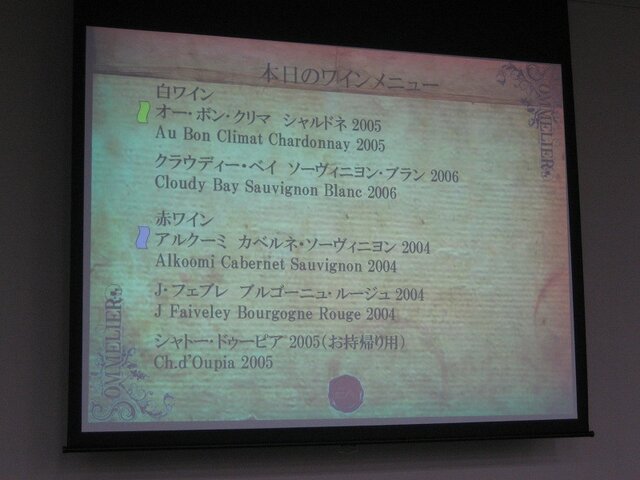 本日のワインメニュー
白ワイン
オー・ボン・クリマ シャルドネ 2005
Au Bon Climat Chardonnay 2005
クラウディー・ベイ ソーヴィニヨン・ブラン 2006
Cloudy Bay Sauvignon Blanc 2006
赤ワイン
アルクーミ カベルネ・ソーヴィニヨン 2004
Alkoomi Cabernet Sauvignon 2004
J・フェブレ ブルゴーニュ・ルージュ 2004
J Faiveley Bourgogne Rouge 2004
シャトー・ドゥーピア 2005(お持帰り用)
Ch.d'Oupia 2005
SOMMELIER
SOMMELIER